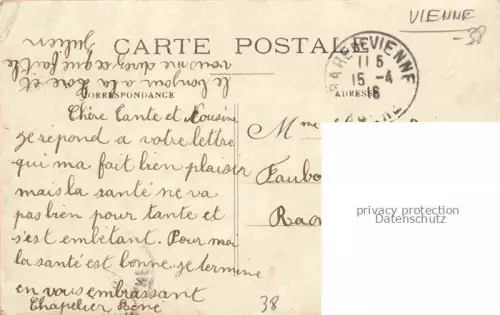 VIENNE
38
CARTE POSTALE
GARE DE VIENNE
11 5
15 - 4
16
ISÈRE
CORRESPONDANCE
ADRESSE
Julien
vous me direz ce que fait le
le bonjour a la Zore et
Chère tante et Cousine
je répond a votre lettre
qui ma fait bien plaisir
mais la santé ne va
pas bien pour tante et
s'est embêtant. Pour moi
la santé est bonne. je termine
en vous embrassant
Chapelier Réné
Mme
Faubo
Rao
privacy protection
Datenschutz
38